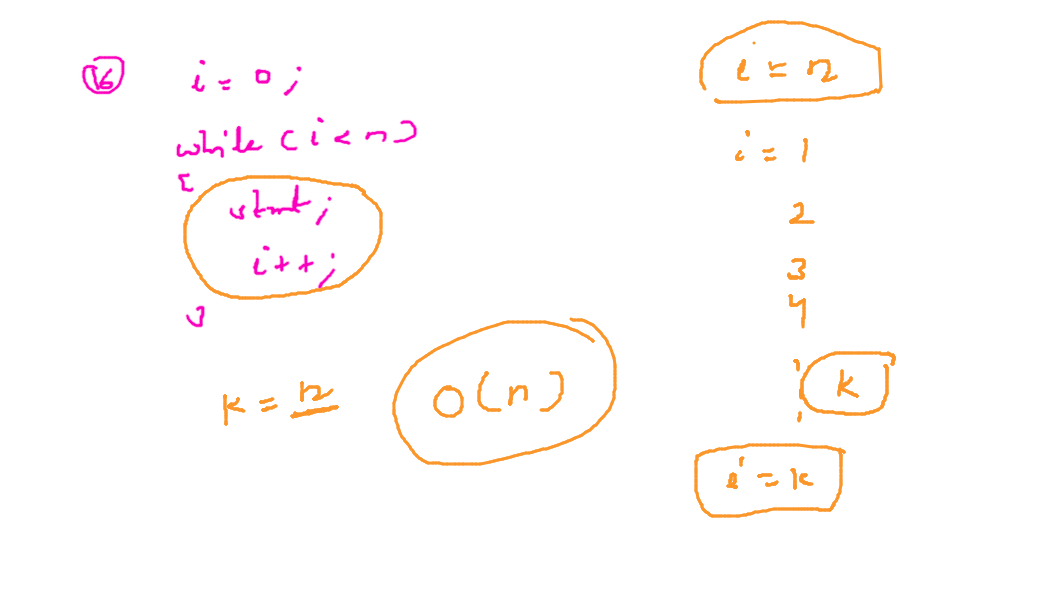 16
i = 0 ;
while ( i < n )
{
stmt ;
i + + ;
}
k = n
O ( n )
i = n
i = 1
2
3
4
k
i = k